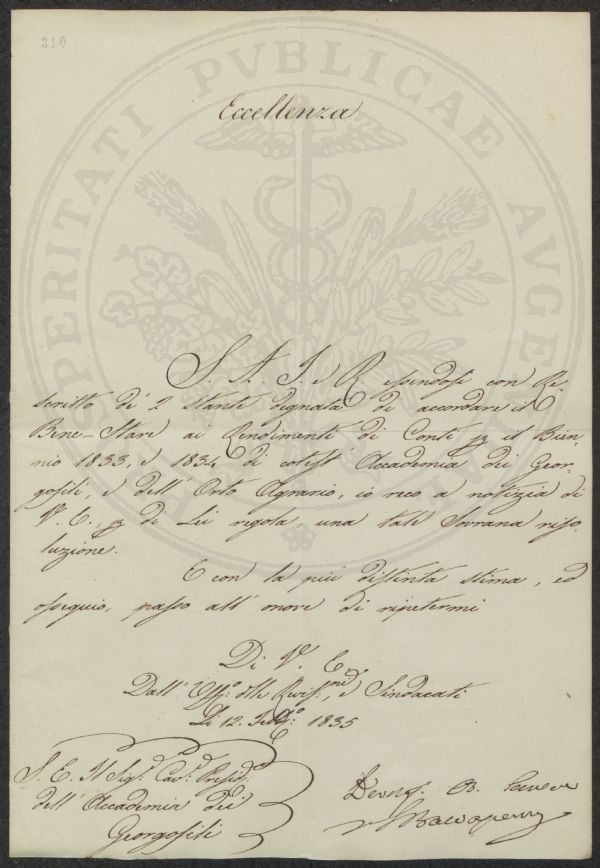 310
PROSPERITATI PVBLICAE AVGENDAE
Eccellenza
S. A. I. e R. essendosi con Re-
scritto de' 2 stante degnata di accordare il
Bene-Stare ai Rendimenti di Conti p il Bien-
nio 1833, e 1834 di cotest' Accademia dei Geor-
gofili, e dell' Orto Agrario, io reco a notizia di
V. E., p di Lei regola, una tale Sovrana riso-
luzione.
E con la più distinta stima, ed
ossequio, passo all' onore di ripetermi
Di V. E.
Dall' Uffo. delle Revisni., e Sindacati
Li 12. Febbo. 1835
S. E. Il Sigr. Cavr. Presidte.
dell' Accademia dei
Georgofili
Devmo. Servre